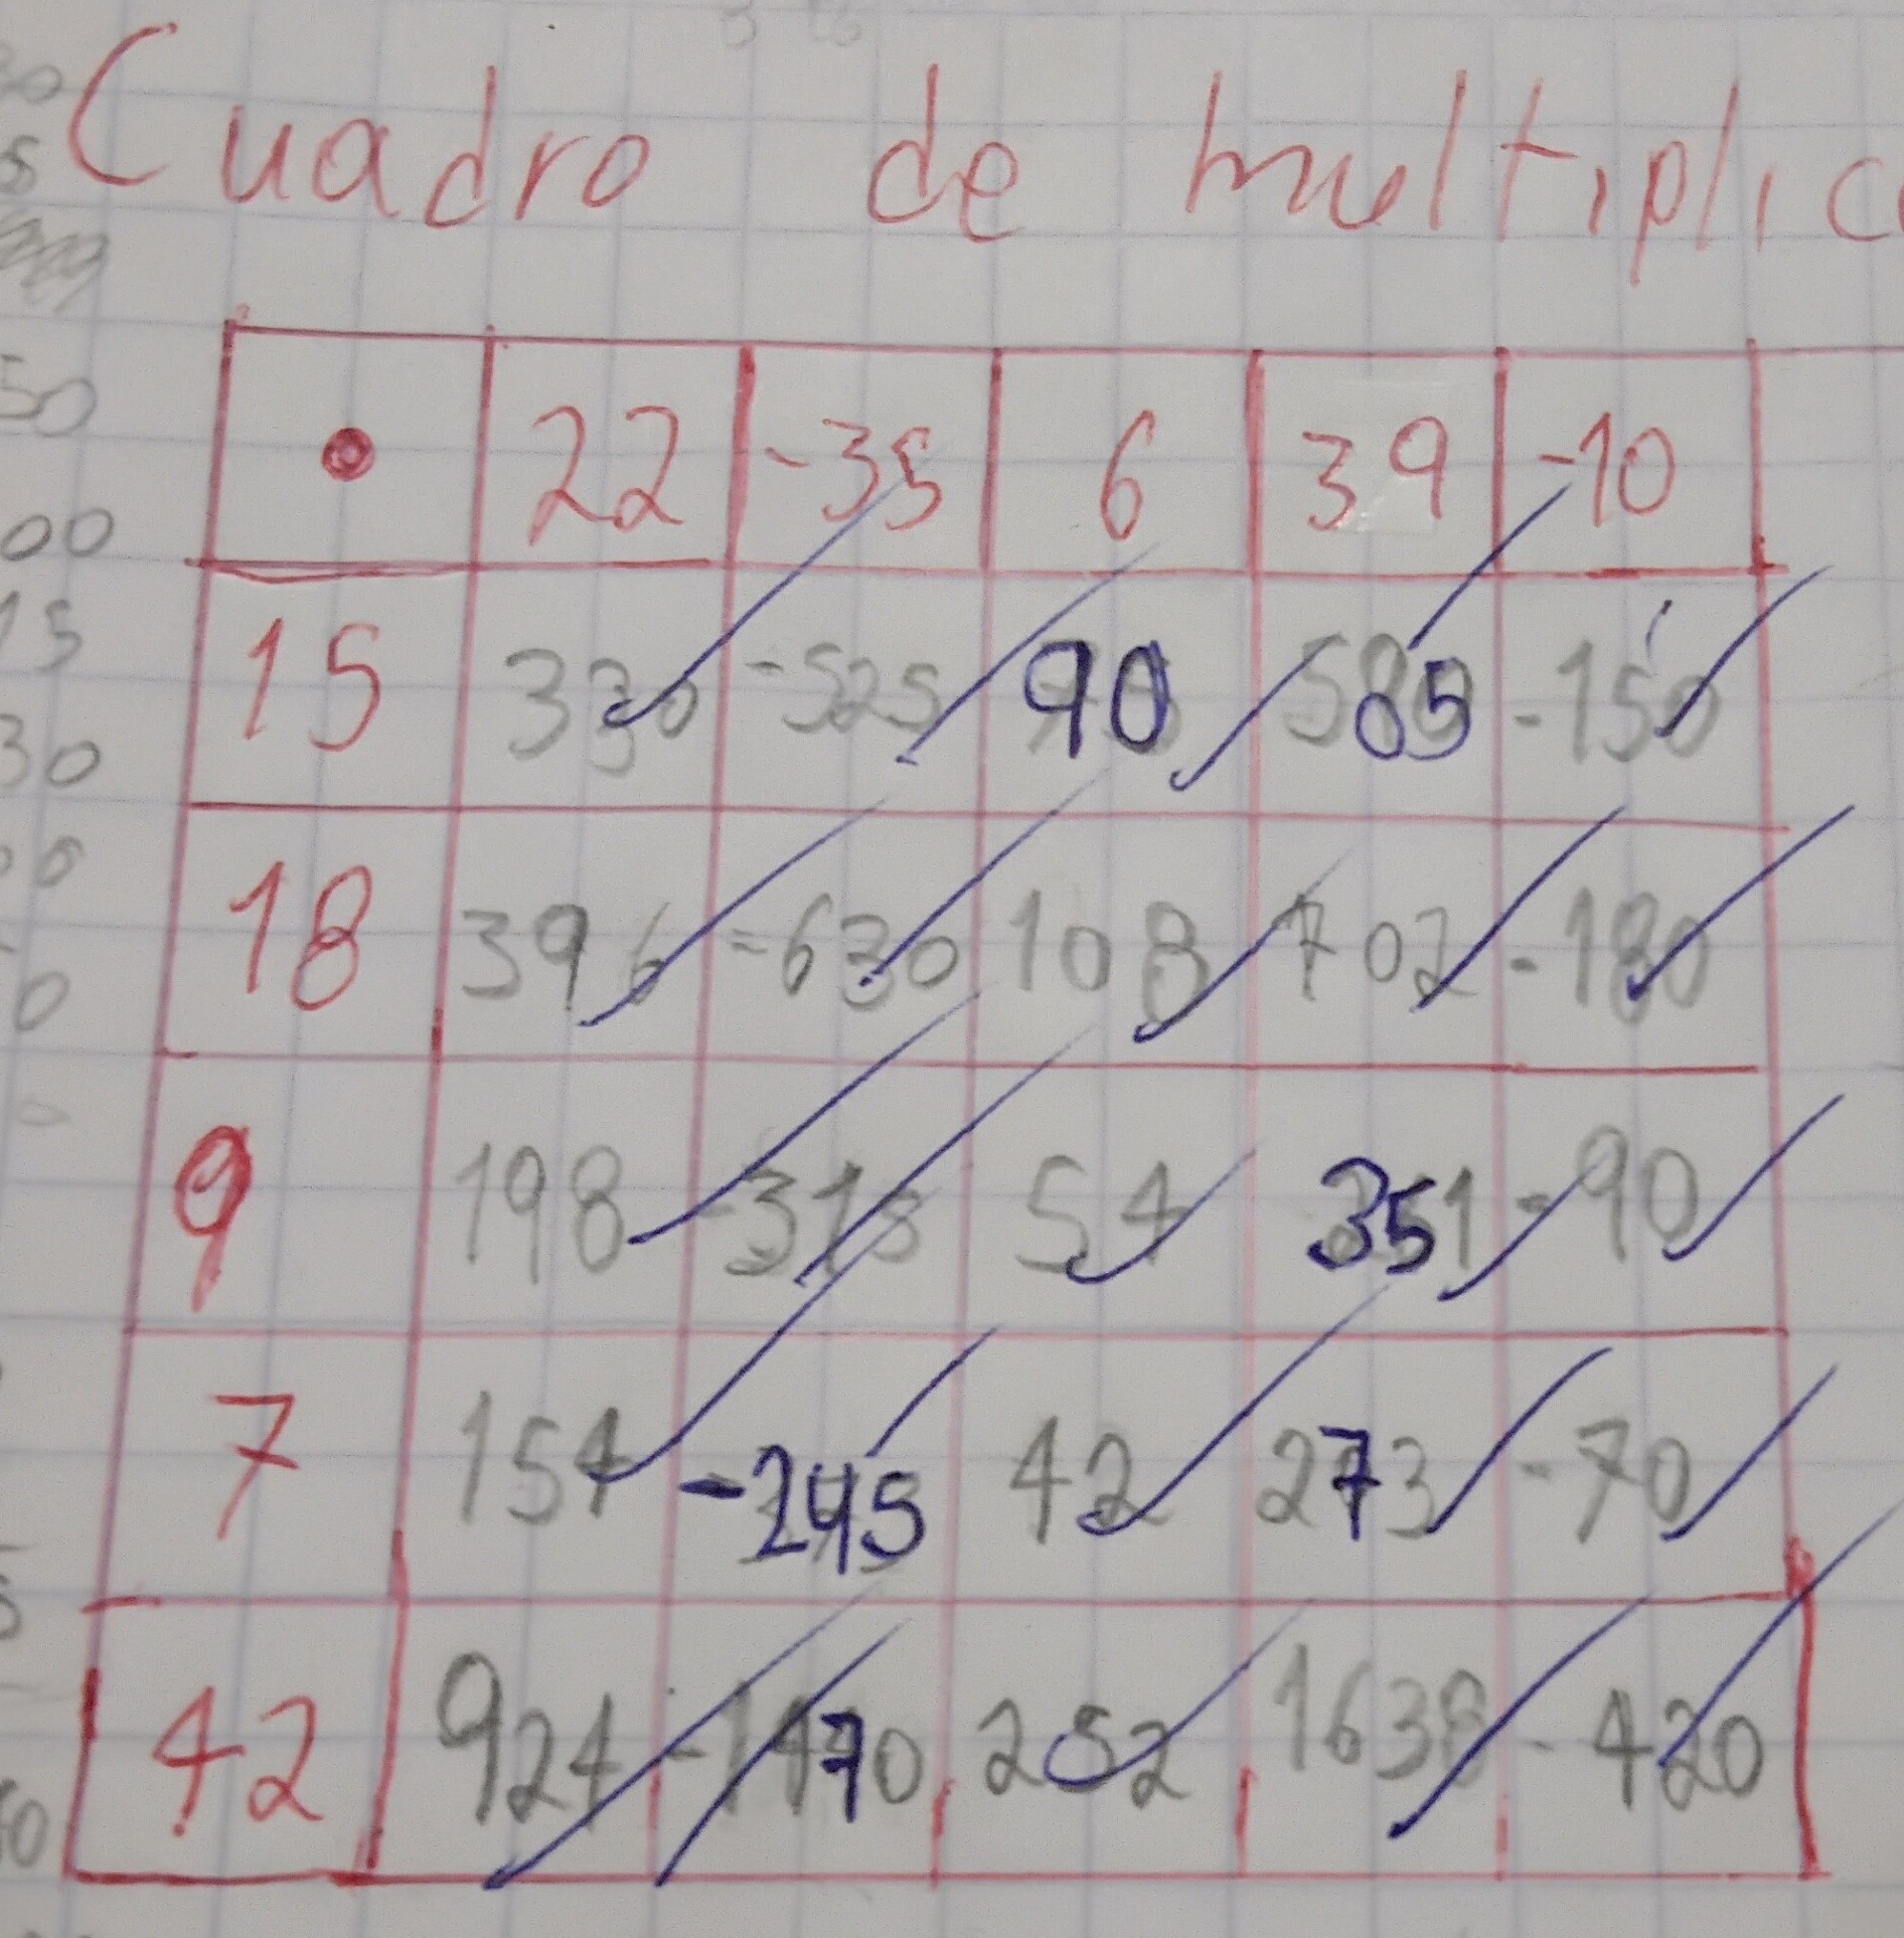 Cuadro de multiplic
• 22 -35 6 39 -10
15 330 -525 90 585 -150
18 396 -630 108 702 -180
9 198 -315 54 351 -90
7 154 -245 42 273 -70
42 924 -1470 252 1638 -420